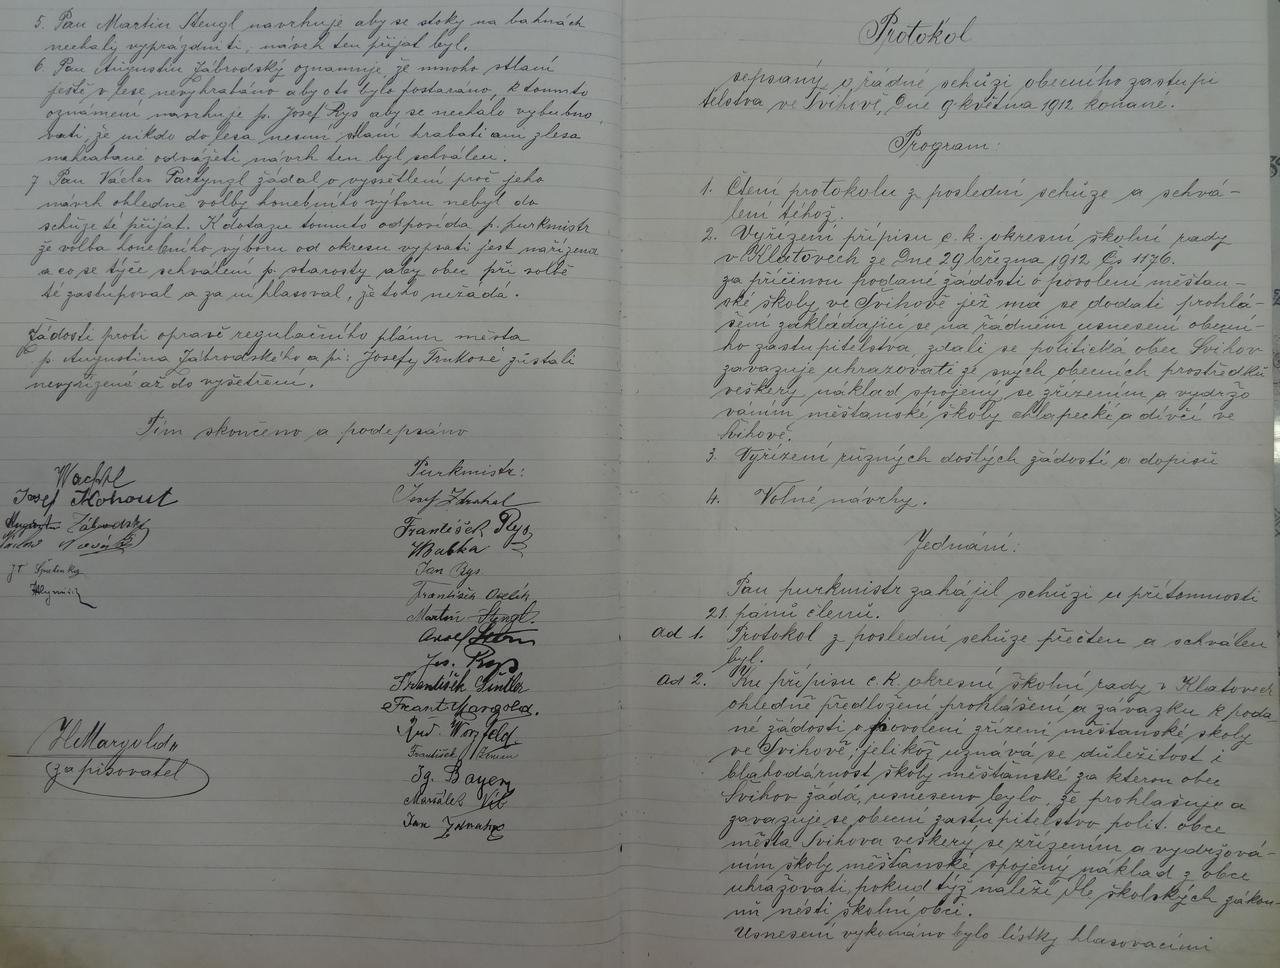 5. Pan Martin Stengl navrhuje aby se stoky na bahnách
nechaly vyprázdniti, návrh ten přijat byl.
6. Pan Augustin Zábrodský oznamuje, že mnoho stlaní
ještě v lese nevyhrabáno aby oto bylo postaráno, k tomuto
oznámení navrhuje p. Josef Rys aby se nechalo vybubno
vati, že nikdo do lesa nesmí, stlaní hrabati ani z lesa
nahrabané odvážeti návrh ten byl schválen.
7 Pan Václav Partyngl žádal o vysvětlení proč jeho
návrh ohledně volby honebního výboru nebyl do
schůze té přijat. K dotazu tomuto odpovídá p. purkmistr
že volba honebního výboru od okresu vypsati jest nařízena
a co se týče schválení p. starosty aby obec při volbě
té zastupoval a za ni hlasoval, je toho nežádá.
Žádosti proti opravě regulačního plánu města
p. Augustina Zábrodského a pí: Josefy zůstali
nevyřízené až do vyšetření.
Tím skončeno a podepsáno
Purkmistr:
Wachtl
Josef Kohout
Josef Zdrahal
Augustin Zábrodský
František Rys
Novák
Bubka
Jan Rys
František
Martin Stengl.
Adolf
Jos. Rys
František Gintler
Frant Margold.
Rud.
H Margold
zapisovatel
František
Ig. Bayer
Maršálek Vít
Jan
Protokol
sepsaný o řádné schůzi obecního zastupi
telstva ve Švihově, Dne 9 května 1912 konané.
Program:
1. Čtení protokolu z poslední schůze a schvá-
lení téhož.
2. Vyřízení přípisu c. k. okresní školní rady
v Klatovech ze Dne 29 března 1912 Čs 1176.
za příčinou podané žádosti o povolení měšťan-
ské školy ve Švihově jež má se dodati prohlá-
šení zakládající se na řádném usnesení obecní-
ho zastupitelstva, zdali se politická obec Švihov
zavazuje uhrazovati ze svých obecních prostředků
veškerý náklad spojený se zřízením a vydržo
váním měšťanské školy chlapecké a dívčí ve
Švihově.
3. Vyřízení různých došlých žádostí a dopisů
4. Volné návrhy.
Jednání:
Pan purkmistr zahájil schůzi u přítomnosti
21. pánů členů.
ad 1. Protokol z poslední schůze přečten a schválen
byl.
ad 2. Ku přípisu c. k. okresní školní rady v Klatovech
ohledně předložení prohlášení a závazku k poda-
né žádosti o povolení zřízení měšťanské školy
ve Švihově, jelikož uznává se důležitost i
blahodárnost školy měšťanské za kterou obec
Švihov žádá, usneseno bylo, že prohlašuje a
zavazuje se obecní zastupitelstvo polit. obce
města Švihova veškerý se zřízením a vydržová-
ním školy měšťanské spojený náklad z obce
uhražovati, pokud týž náleží dle školských záko-
nů nésti školní obci.
Usnesení vykonáno bylo lístky hlasovacími